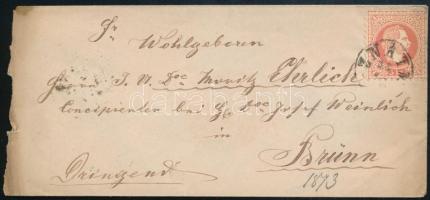 Sr
Wohlgeboren
Herrn J. U. Doc Moritz Ehrlich
Concipienten bei H. Doc Josef Weinlich
in
Brünn
Dringend
1873
ZNAIM